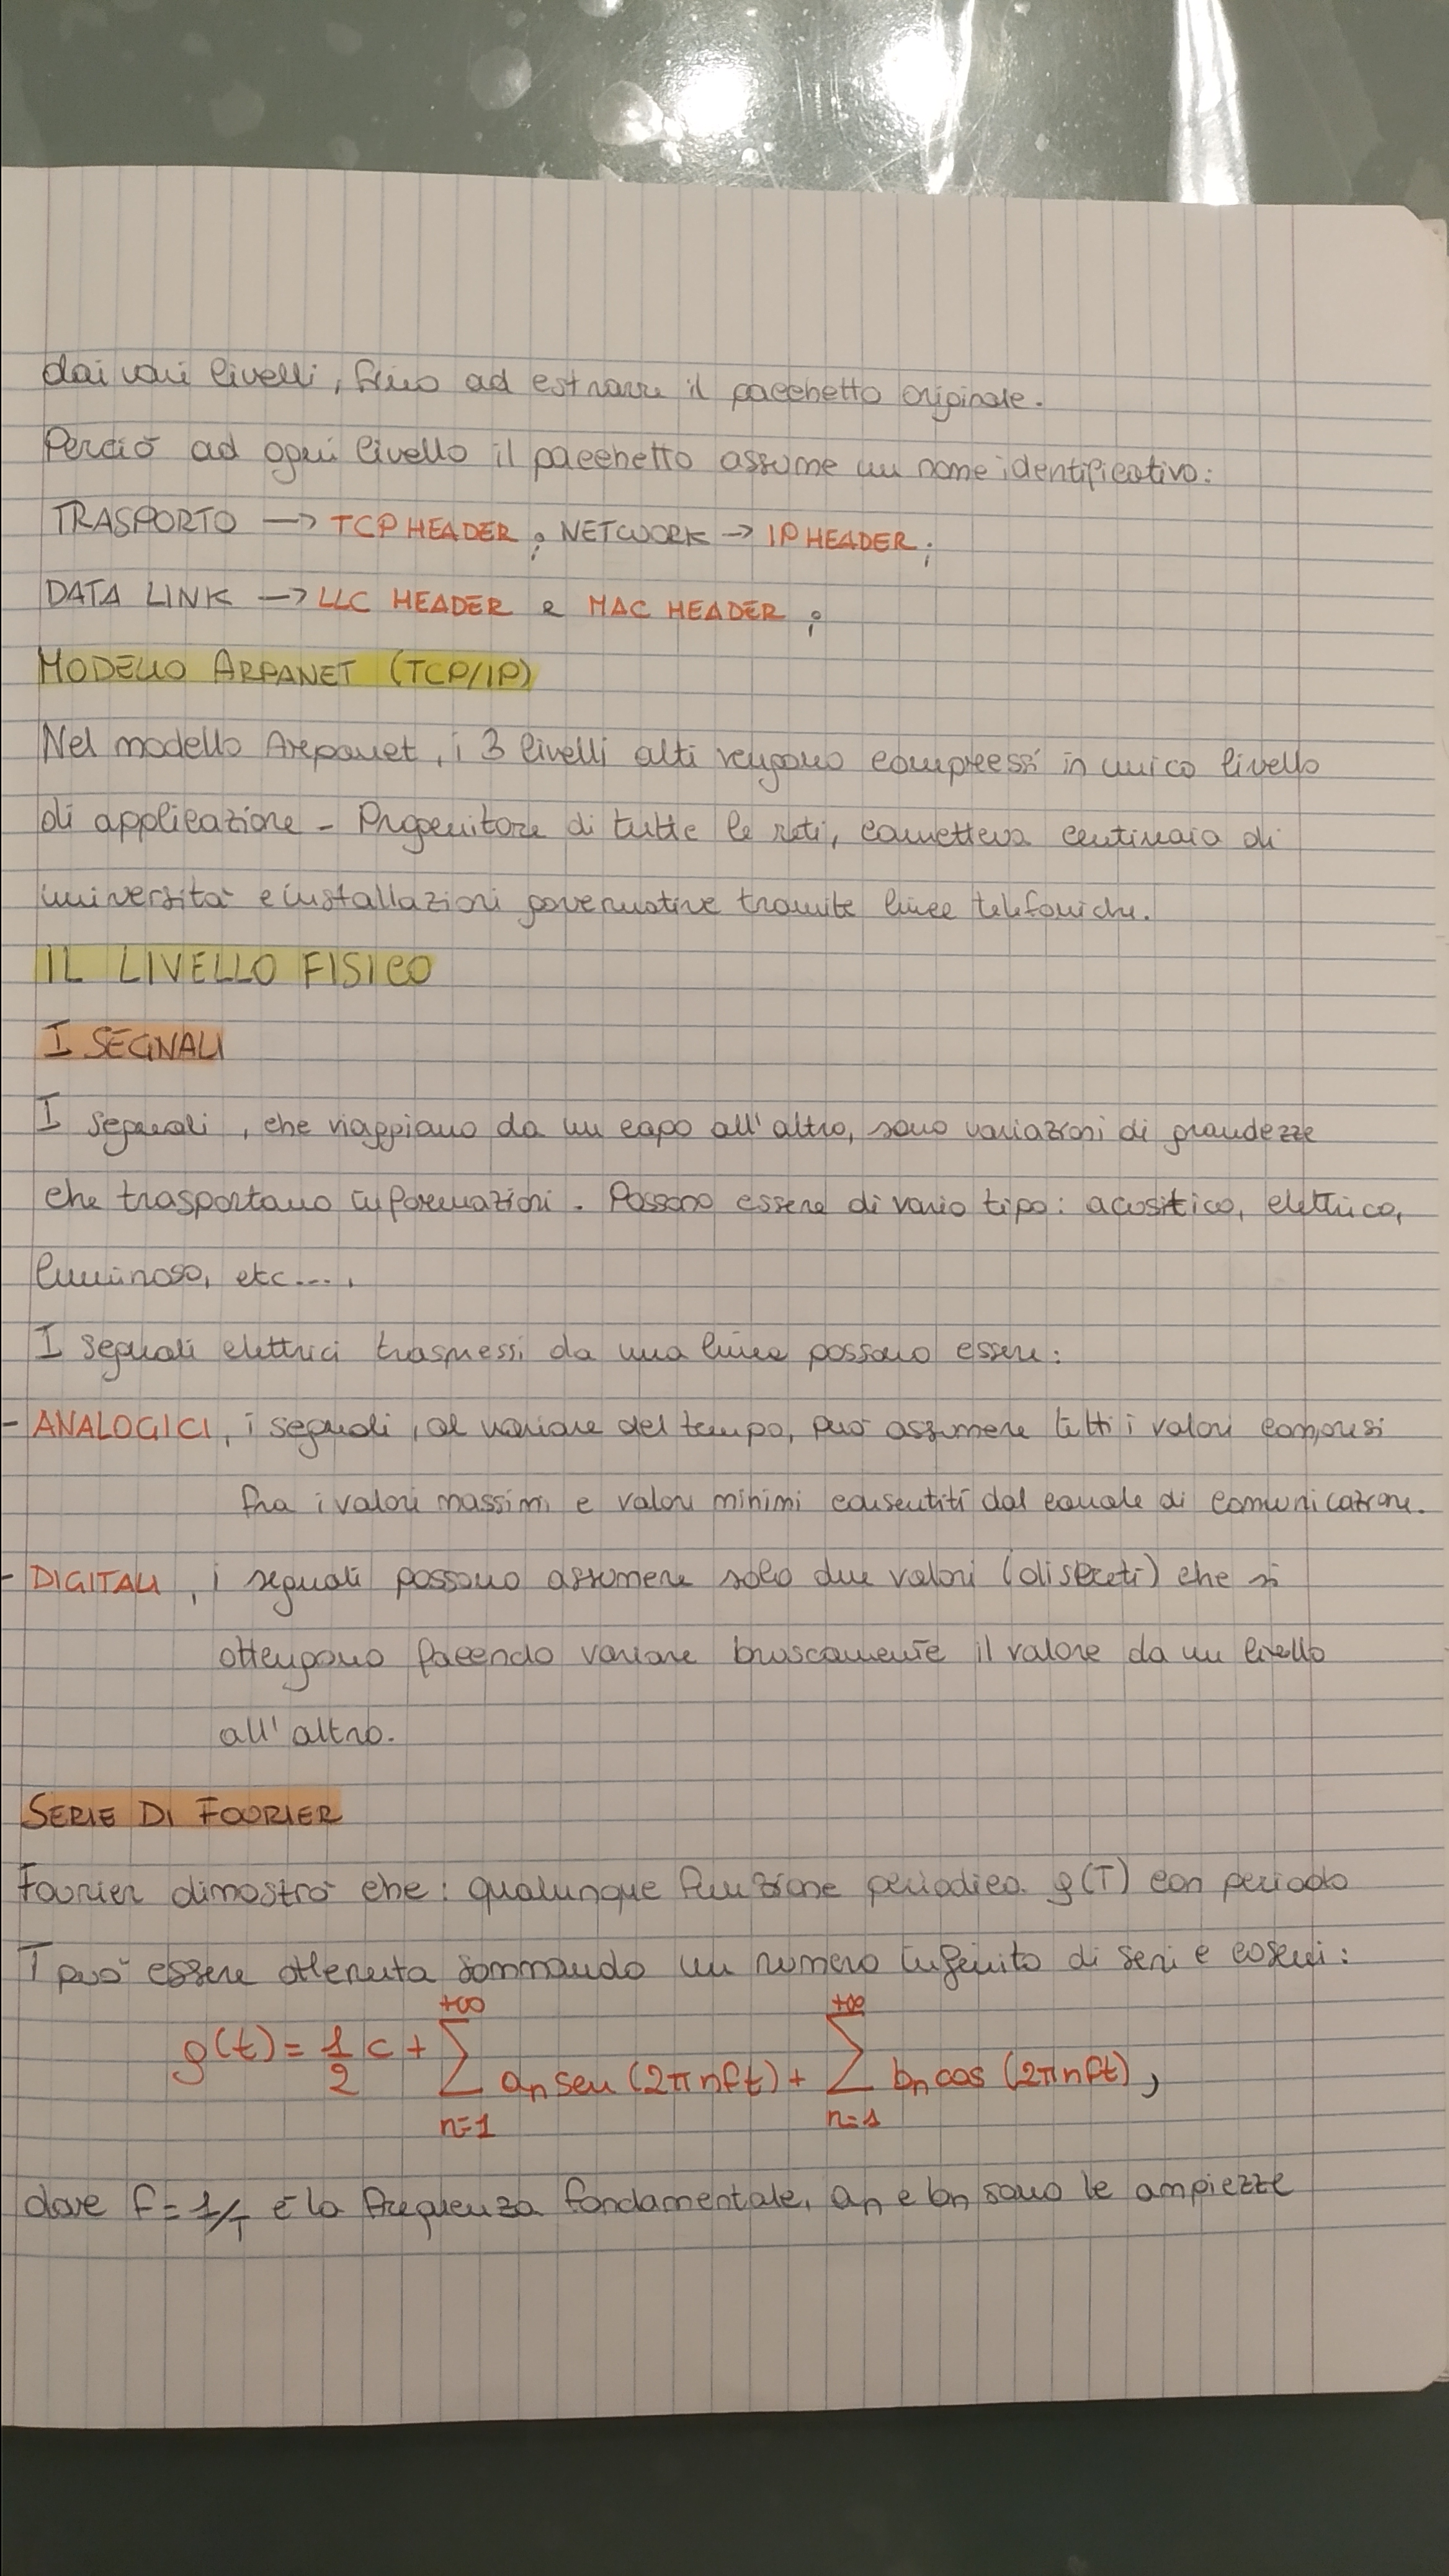 dai vari livelli, fino ad estrarre il pacchetto originale.
Perciò ad ogni livello il pacchetto assume un nome identificativo:
TRASPORTO —> TCP HEADER ; NETWORK —> IP HEADER ;
DATA LINK —> LLC HEADER e MAC HEADER ;
MODELLO ARPANET (TCP/IP)
Nel modello Arpanet, i 3 livelli alti vengono compressi in unico livello
di applicazione - Progenitore di tutte le reti, connetteva centinaia di
università e installazioni governative tramite linee telefoniche.
IL LIVELLO FISICO
I SEGNALI
I segnali, che viaggiano da un capo all'altro, sono variazioni di grandezze
che trasportano informazioni. Possono essere di vario tipo: acustico, elettrico,
luminoso, etc....
I segnali elettrici trasmessi da una linea possono essere:
- ANALOGICI, i segnali, al variare del tempo, può assumere tutti i valori compresi
fra i valori massimi e valori minimi consentiti dal canale di comunicazione.
- DIGITALI, i segnali possono assumere solo due valori (discreti) che si
ottengono facendo variare bruscamente il valore da un livello
all'altro.
SERIE DI FOURIER
Fourier dimostrò che: qualunque funzione periodica g(T) con periodo
T può essere ottenuta sommando un numero infinito di seni e coseni:
g(t) = 1/2 c + +∞ ∑ n=1 an sen (2πnft) + +∞ ∑ n=1 bn cos (2πnft),
dove f = 1/T è la frequenza fondamentale, an e bn sono le ampiezze